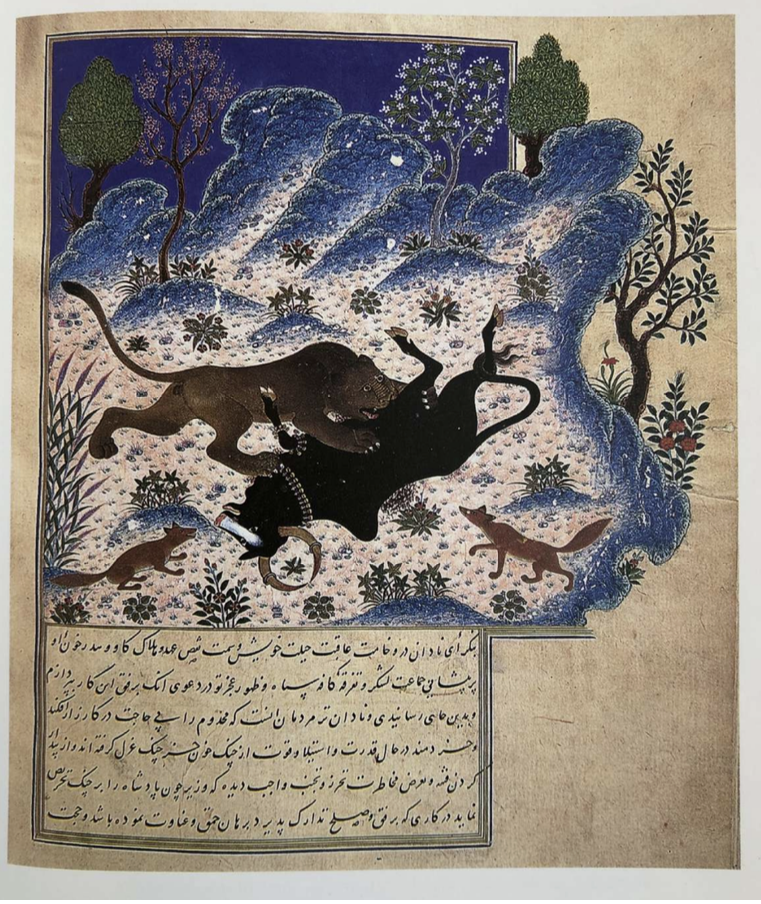 بنکر ای نادان در وخامت عاقبت حیلت خویش و سمت نقص عهد و هلاک کاو و هدر خون او
و پریشانی جماعت لشکر و تفرقه کافه سپاه و ظهور عجز تو در دعوی انک برفق این کار بپردازم
و بدین جای رسانیدی و نادان تر مردمان انست که مخدوم را بی حاجت در کارزار افکند
و خردمند در حال قدرت و استیلا و قوت از جنک چون خرچنک عزل کرفته اند و از بیدار
کردن فتنه و تعرض مخاطرت تحرز و تجنب واجب دیده که وزیر چون پادشاه را بر جنک تحریص
نماید در کاری که برفق و صلح تدارک پذیرد برهان حمق و غباوت نموده باشد و حجت